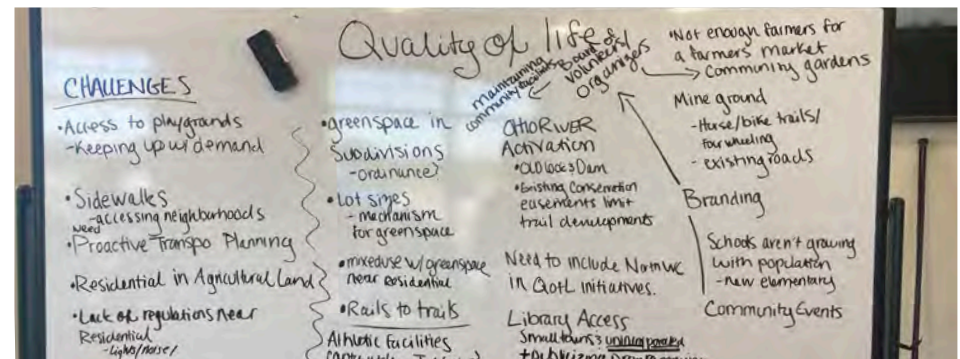 Quality of life
CHALLENGES
•Access to playgrounds
-Keeping up w/ demand
•Sidewalks
-accessing neighborhoods
need
•Proactive Transpo Planning
•Residential in Agricultural Land
•Lack of regulations near
Residential
-lights/noise/
•greenspace in
Subdivisions
-ordinance?
•Lot sizes
-mechanism
for greenspace
•mixeduse w/greenspace
near residential
•Rails to trails
Athletic Facilities
maintaining
community
Board of
volunteers/
organizers
OHIO RIVER
Activation
•Old locks & Dam
•Existing Conservation
easements limit
trail developments
Need to include North WC
in QofL initiatives.
Library Access
Small towns & unincorporated
•Not enough farmers for
a farmers market
Community gardens
Mine ground
-Horse/bike trails/
four wheeling
-existing roads
Branding
Schools aren't growing
with population
-new elementary
Community Events